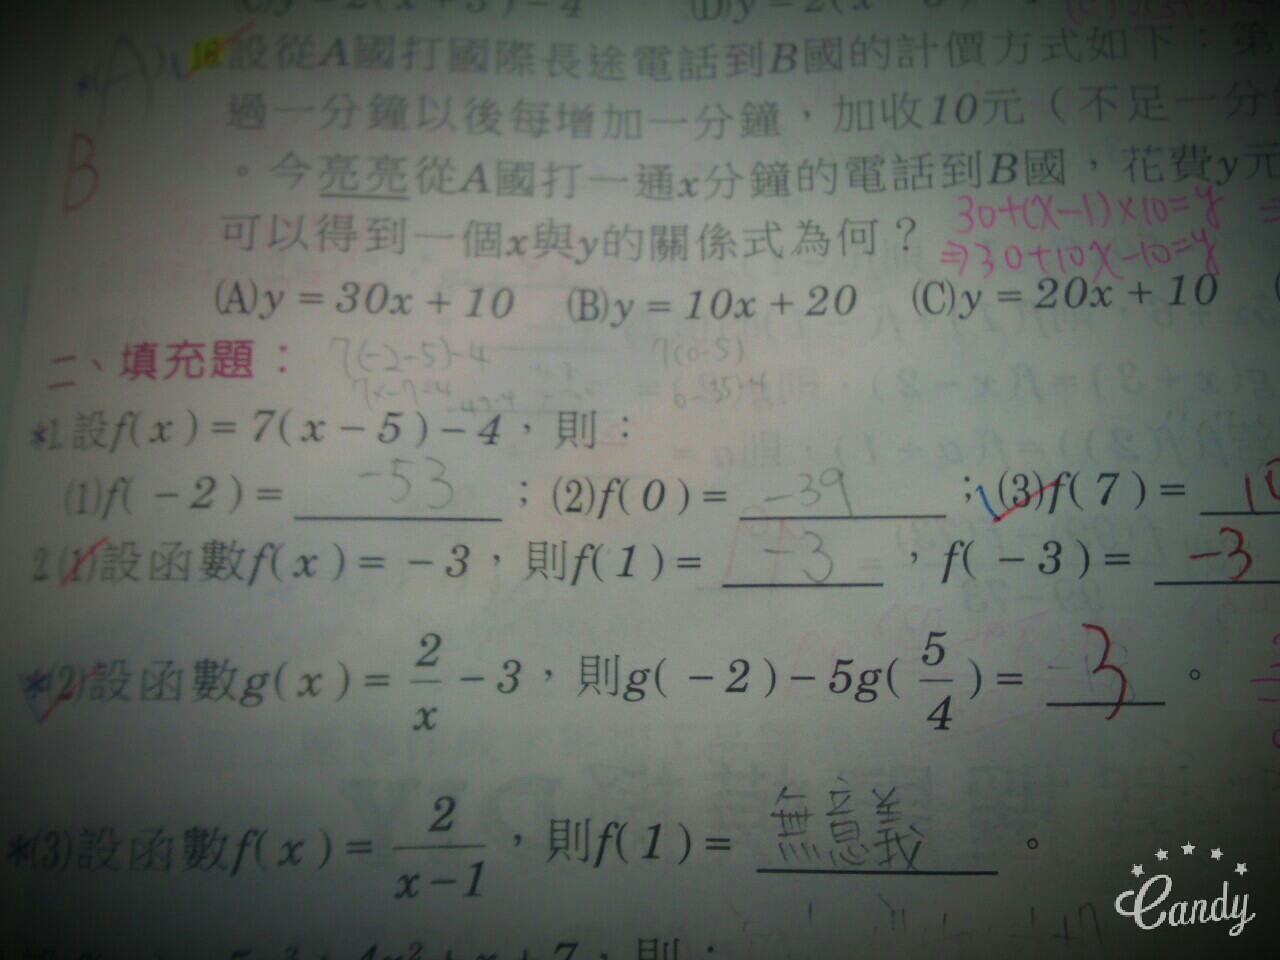 (D)y=2(x
16 設從A國打國際長途電話到B國的計價方式如下：第
過一分鐘以後每增加一分鐘，加收10元（不足一分
。今亮亮從A國打一通x分鐘的電話到B國，花費y元
可以得到一個x與y的關係式為何？ 30+(x-1)×10=y
⇒30+10x-10=y
A
B
(A)y=30x+10 (B)y=10x+20 (C)y=20x+10
二、填充題： 7(-2-5)-4 7(0-5)
*1.設f(x)=7(x-5)-4，則：
(1)f(-2)= -53 ；(2)f(0)= -39 ；(3)f(7)= 10
2.(1)設函數f(x)=-3，則f(1)= -3 ，f(-3)= -3
*(2)設函數g(x)=2/x-3，則g(-2)-5g(5/4)= 3 。
*(3)設函數f(x)=2/(x-1)，則f(1)= 無意義 。
Candy